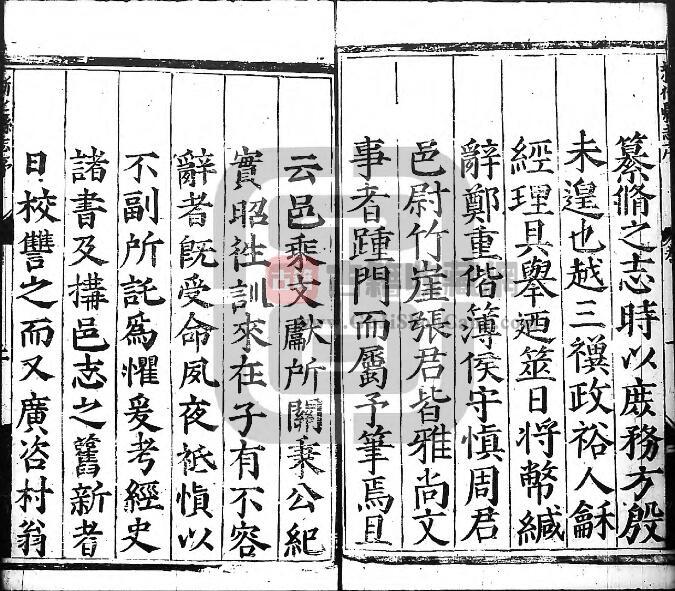 纂脩之志時以庶務方殷
未遑也越三禩政裕人龢
經理具舉廼筮日將幣緘
辭鄭重偕簿侯守愼周君
邑尉竹崖張君皆雅尚文
事者踵門而屬予筆焉且
云邑乘文獻所關秉公紀
實昭徃訓來在子有不容
辭者旣受命夙夜祗愼以
不副所託爲懼爰考經史
諸書及搆邑志之舊新者
日校讐之而又廣咨村翁